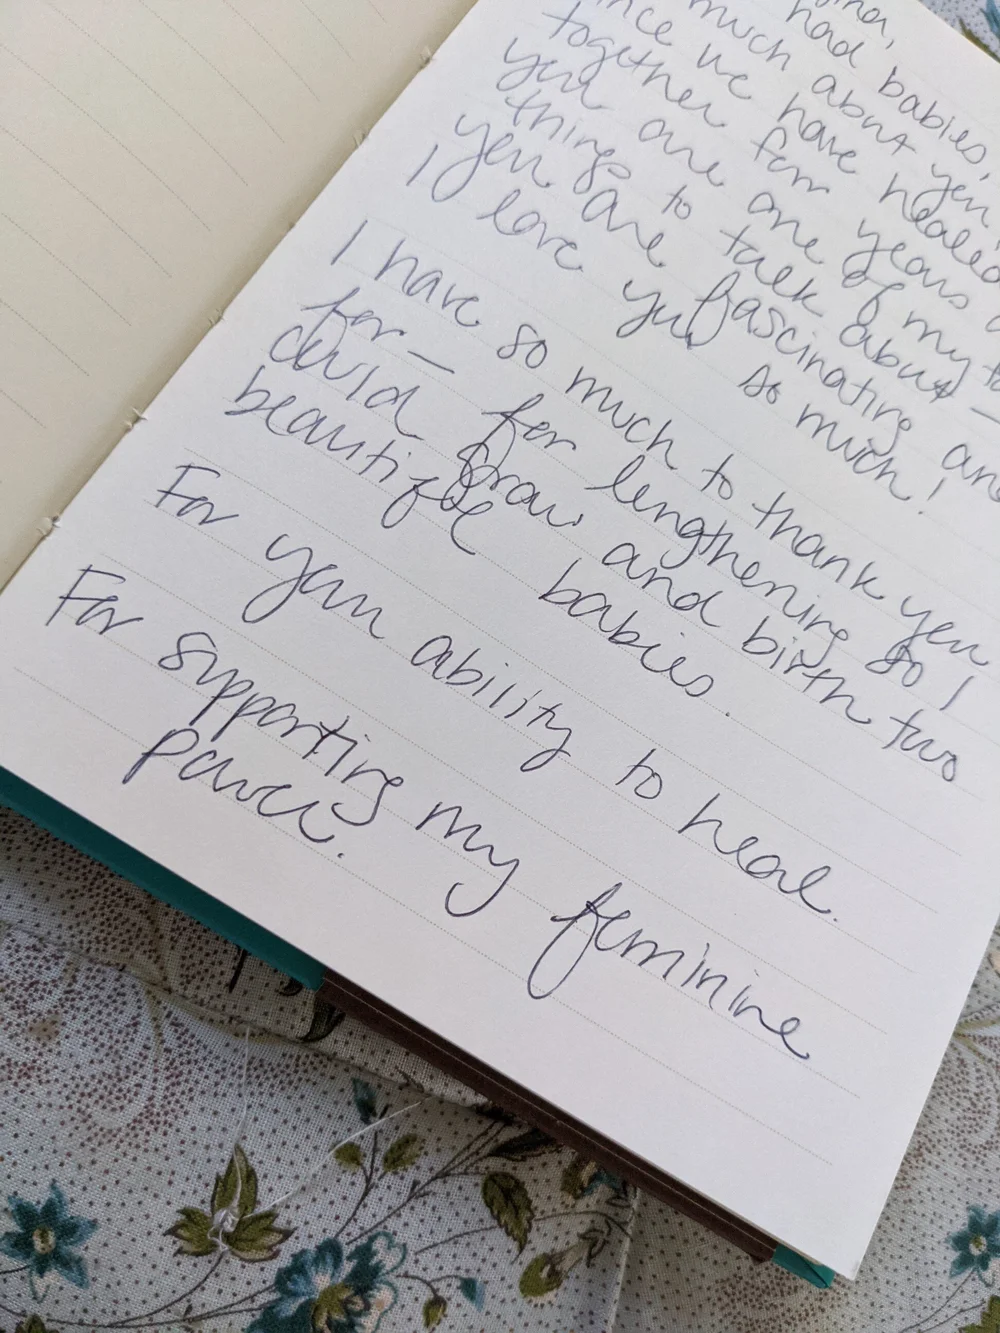 had babies,
much about you
since we have healed
together for years
you are one of my
things to talk about —
you are fascinating and
I love you so much!
I have so much to thank you
for — for lengthening so I
could grow and birth two
beautiful babies.
For your ability to heal.
For supporting my feminine
power.